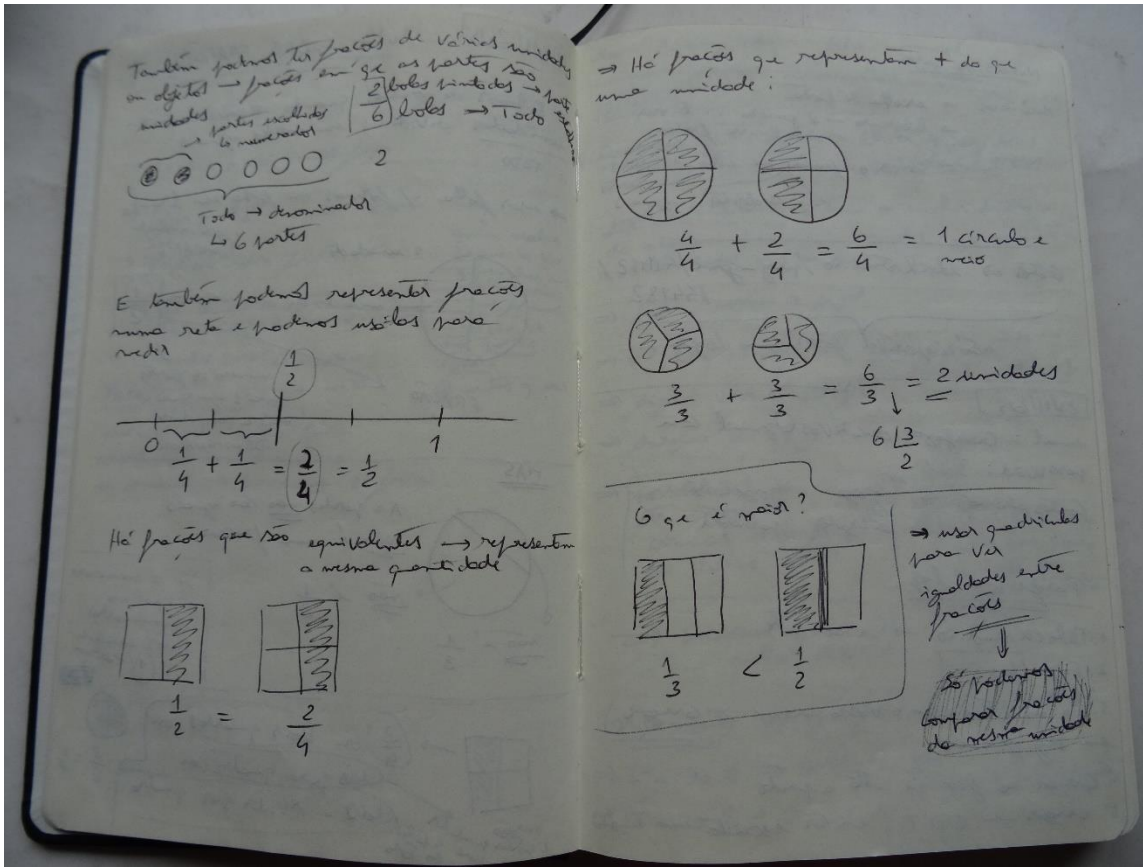 Também podemos ter frações de várias unidades
ou objetos → frações em qe as partes são
unidades
2/6 bolas pintadas → parte
bolas → Todo
→ partes escolhidas
↳ numerador
2
Todo → denominador
↳ 6 partes
E também podemos representar frações
numa reta e podemos usálas para
medir
1/2
0 1
1/4 + 1/4 = 2/4 = 1/2
Há frações que são equivalentes → representam
a mesma quantidade
1/2 = 2/4
⇒ Há frações qe representam + do qe
uma unidade:
4/4 + 2/4 = 6/4 = 1 círculo e
meio
3/3 + 3/3 = 6/3 = 2 unidades
6 | 3
2
O qe é maior?
1/3 < 1/2
⇒ usar quadriculas
para ver
igualdades entre
frações
Só podemos
comparar frações
da mesma unidade